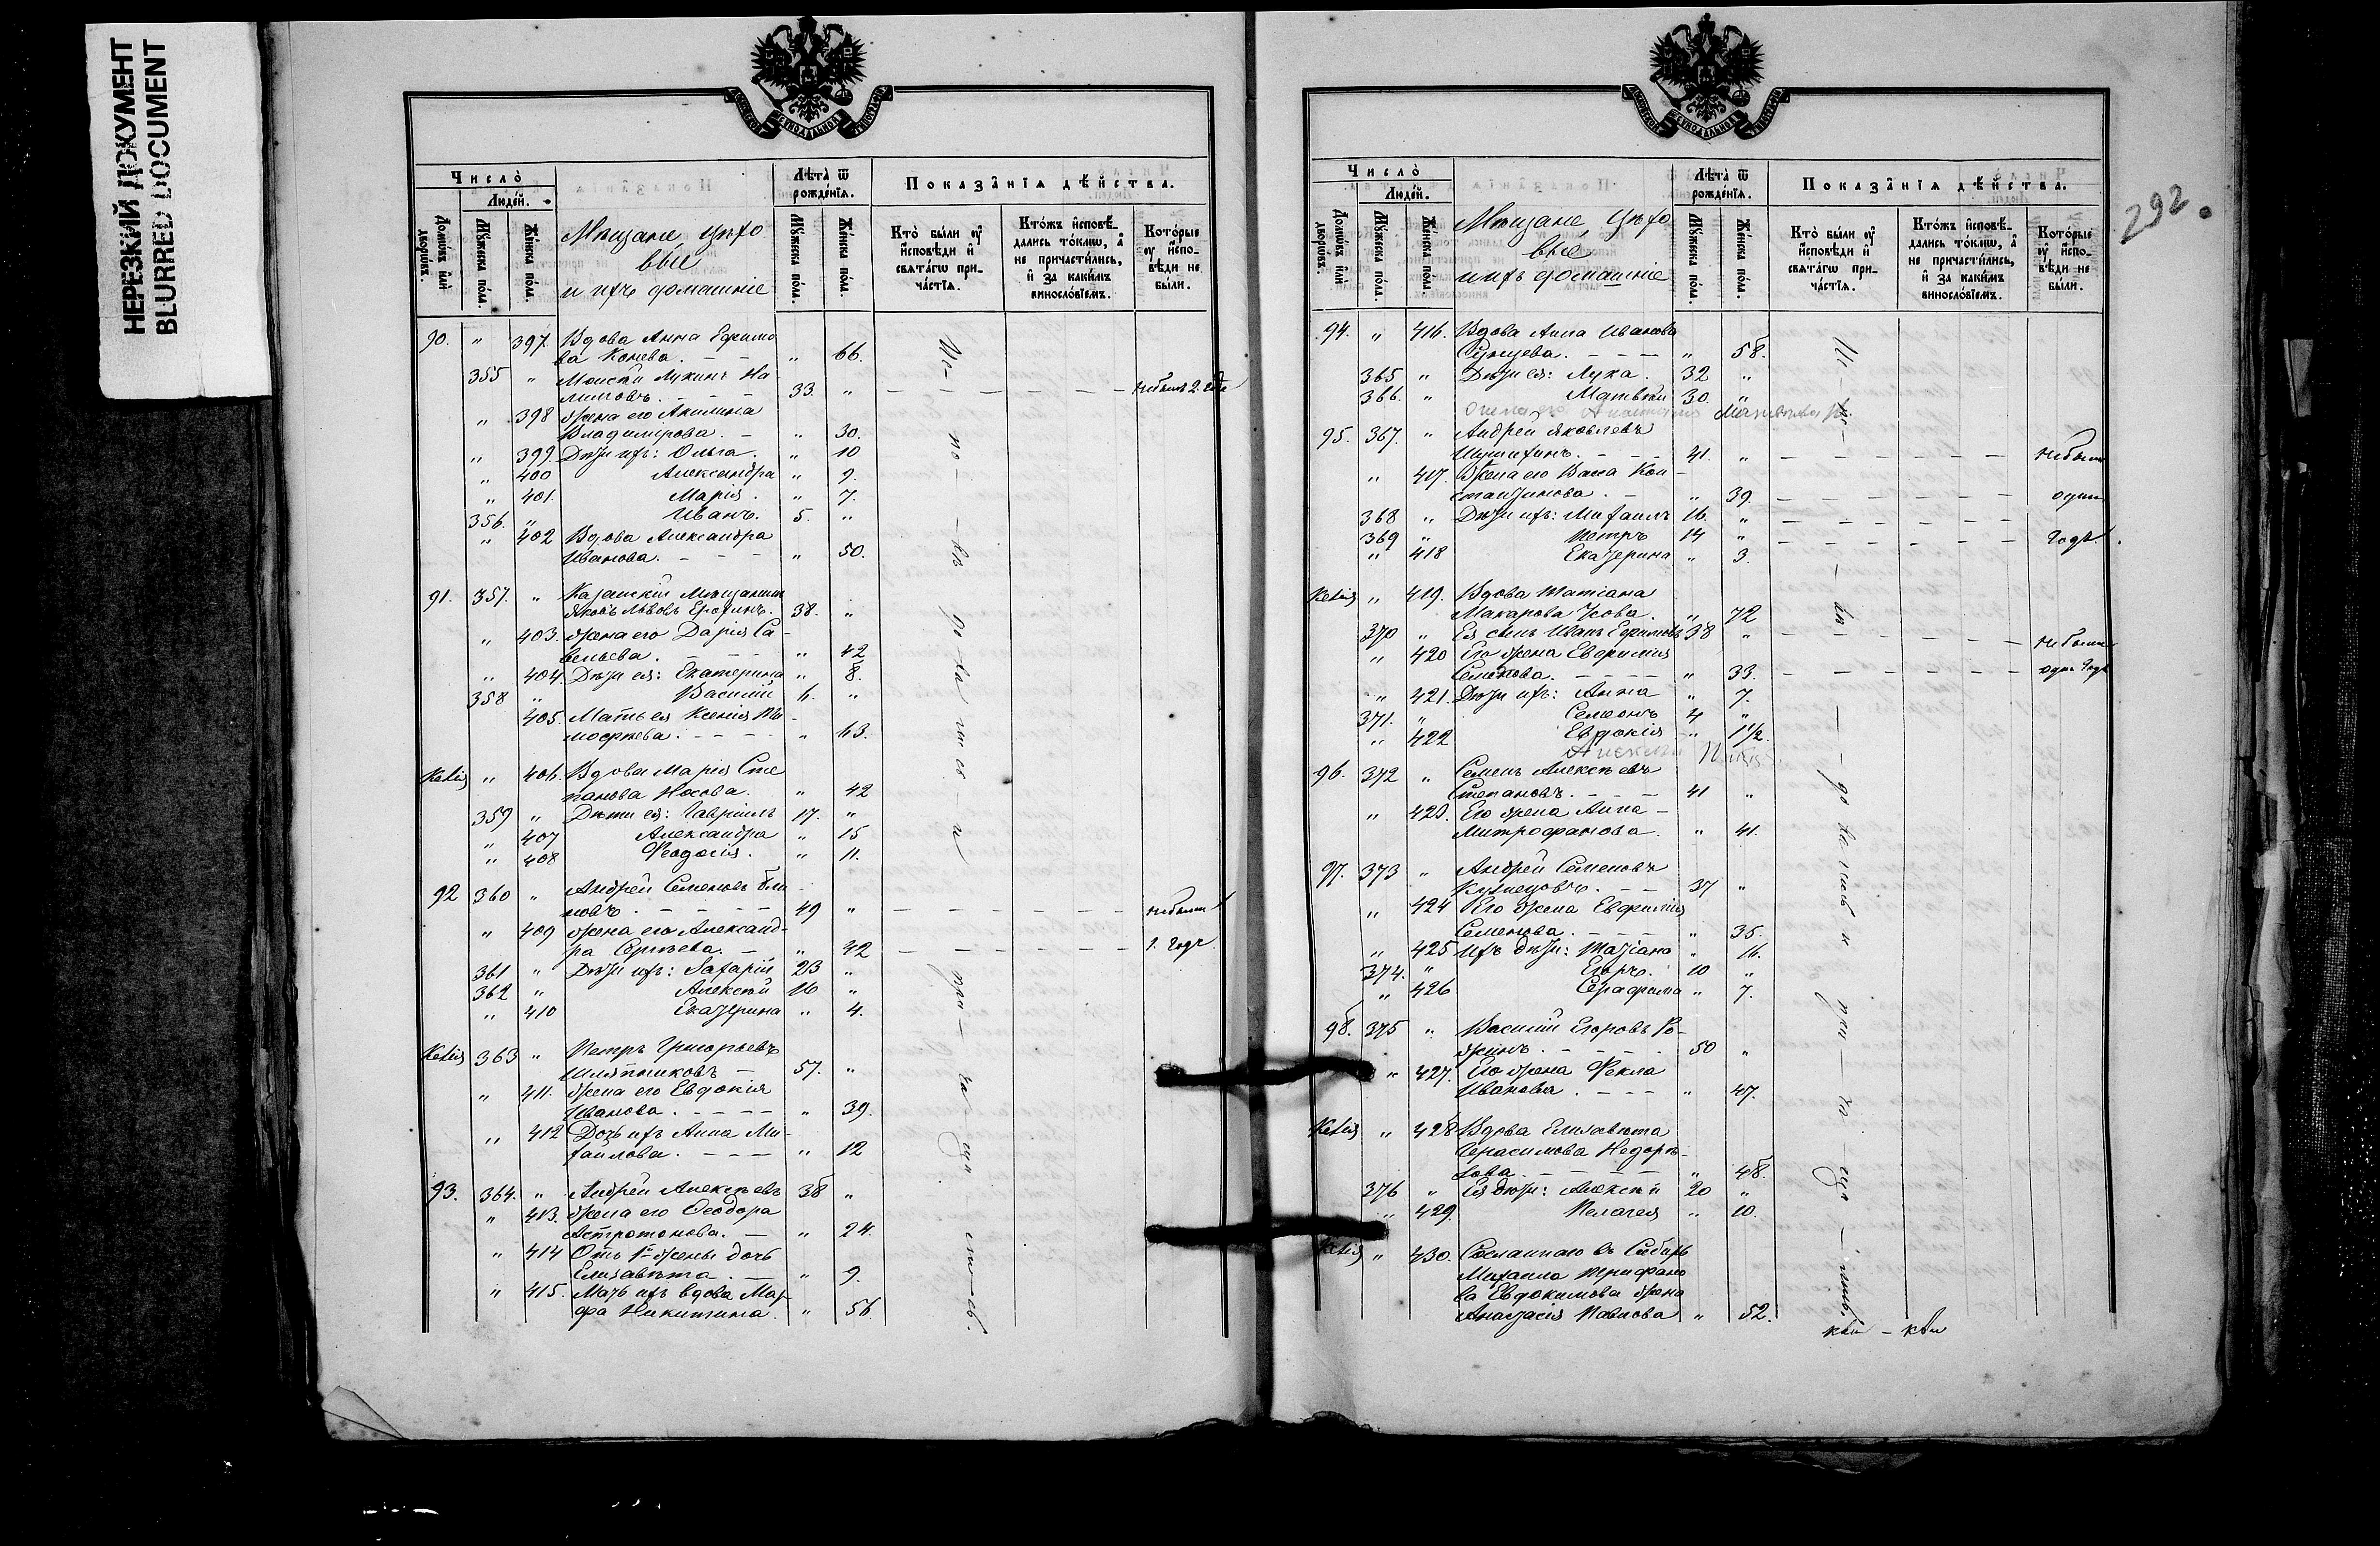 НЕРЕЗКИЙ ДОКУМЕНТ
BLURRED DOCUMENT
Число̀
Людей.
Домѡвъ или дворѡвъ.
Мужеска пола.
Женска пола.
Мѣщане цехо
вые
и ихъ домашніе
Лѣта ѿ рожденїѧ.
Мужеска пола.
Женска пола.
Показанїѧ дѣйства.
Кто̀ были оу҆ исповѣди и҆ свѧтагѡ причастїѧ.
Кто́жъ исповѣдались токмѡ, а҆ не причастились, и҆ за какимъ винословїемъ.
Которые оу҆ исповѣди не были.
90. " 397. Вдова Анна Ефимо
ва Конева. - - " 66.
355 " Моисей Лукинъ На
лимовъ. - - - 33. " - - - - - Не былъ 2. года
" 398 Жена его Акилина
Владимірова. - " 30.
" 399. Дѣти ихъ: Ольга. " 10
" 400 Александра " 9.
" 401. Марія. " 7.
356. " Иванъ. 5. "
" 402 Вдова Александра
Иванова. - - - " 50.
91. 357. " Казанскій Мѣщанинъ
Яковъ Львовъ Ерохинъ. 38. "
" 403. Жена его Дарія Са-
вельева. - - - " 42
" 404. Дѣти ея: Екатерина " 8.
358 " Василій 6. "
405. Мать ея Ксенія Ти-
мофѣева. - - - " 63.
Келія " 406. Вдова Марія Сте
панова Носова. " 42
359 " Дѣти ея: Гавріилъ 17. "
" 407 Александра " 15
" 408 Феодосія. " 11.
92 360 " Андрей Семеновъ Бли
новъ. - - - - 49 " - - - - - - не были
" 409 Жена его Александ-
ра Сергѣева. - " 42 - - - - - 1. годъ.
361 " Дѣти ихъ: Захарій 23 "
362 " Алексѣй 16 "
" 410 Екатерина " 4.
Келія 363 " Петръ Григорьевъ
Шляпниковъ - 57. "
" 411. Жена его Евдокія
Иванова. - - - - " 39.
" 412 Дочь ихъ Анна Ми-
хайлова. - - - " 12
93. 364. " Андрей Алексѣевъ 38 "
" 413. Жена его Феодора
Астромонова. - " 24.
" 414 Отъ 1й жены дочь
Елизавета. - " 9.
" 415. Мать ихъ вдова Мар-
фа Никитина. " 56.
Ис- по- вѣ до ва ли сь и при- ча- ща- лись.
292.
Число̀
Людей.
Домѡвъ или дворѡвъ.
Мужеска пола.
Женска пола.
Мѣщане, цехо
вые
и ихъ домашніе
Лѣта ѿ рожденїѧ.
Мужеска пола.
Женска пола.
Показанїѧ дѣйства.
Кто̀ были оу҆ исповѣди и҆ свѧтагѡ причастїѧ.
Кто́жъ исповѣдались токмѡ, а҆ не причастились, и҆ за какимъ винословїемъ.
Которые оу҆ исповѣди не были.
94. " 416. Вдова Анна Иванова
" 58.
365 " Дѣти ея: Лука. 32 "
366. " Матвѣй 30. "
95. 367. " Андрей Яковлевъ
41. " - - - - - - Не были
" 417. Жена его Васса Кон-
стантинова. - " 39. - - - - - - одинъ
368 " Дѣти ихъ: Михаилъ 16. " - - - - - -
369 " Петръ 14 " - - - - - - годъ.
" 418 Екатерина " 3.
Келія " 419. Вдова Татіана
Макарова Усова. " 72
370 " Ея сынъ Иванъ Ефимовъ 38 " - - - - - - Не были
" 420 Его жена Евфимія
Семенова. - - - - " 33. - - - - - одинъ годъ
" 421. Дѣти ихъ: Анна " 7.
371. " Семеонъ 4 "
" 422 Евдокія " 1 1/2.
96. 372 " Семенъ Алексѣевъ
Степановъ. - - - 41 "
" 423. Его жена Анна -
Митрофанова. " 41.
97. 373 " Андрей Семеновъ
Кузнецовъ. - - 37 "
" 424 Его жена Евфимія
Семенова. - - - " 35.
" 425 Ихъ дѣти: Татіана " 16.
374. " Егоръ. 10 "
" 426 Серафима " 7.
98. 375 " Василій Егоровъ Ро-
жинъ. - - - - 50 "
" 427. Его жена Фекла
Иванова. - - - " 47.
Келія " 428 Вдова Елизавета
Герасимова Недорѣ-
зова. - - - - - " 48.
376 " Ея дѣти: Алексѣй 20 "
" 429. Пелагея " 10.
Келія " 430. Сосланнаго въ Сибирь
Михаила Трифано
ва Евдокимова жена
Анастасія Павлова " 52.